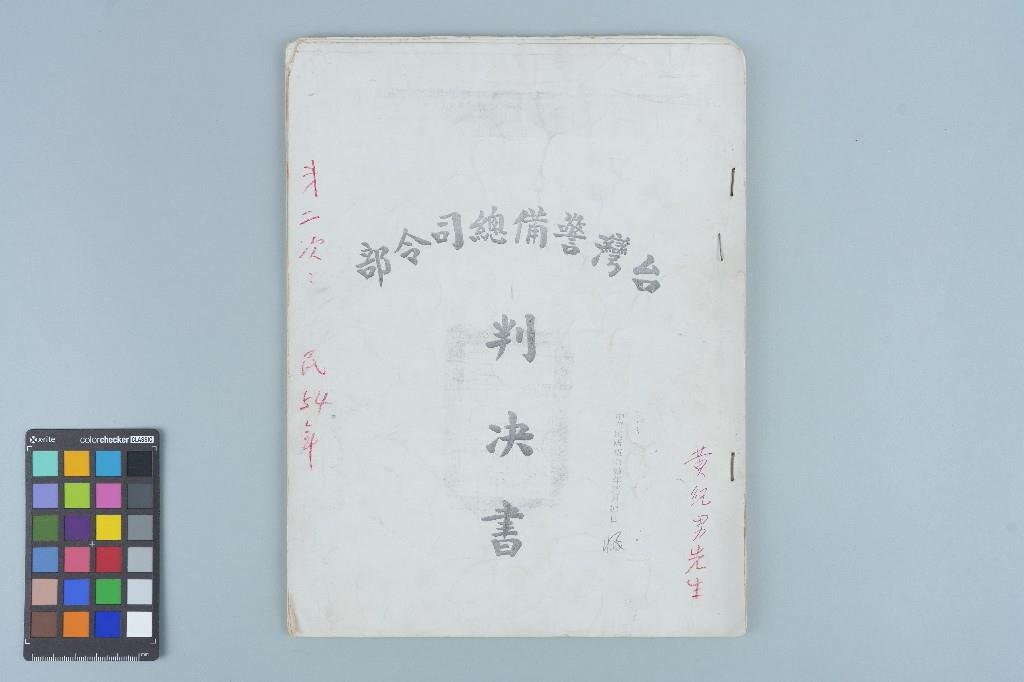 台灣警備總司令部
判決書
黃紀男先生
收
第二次：民54年
x-rite
colorchecker CLASSIC
mm